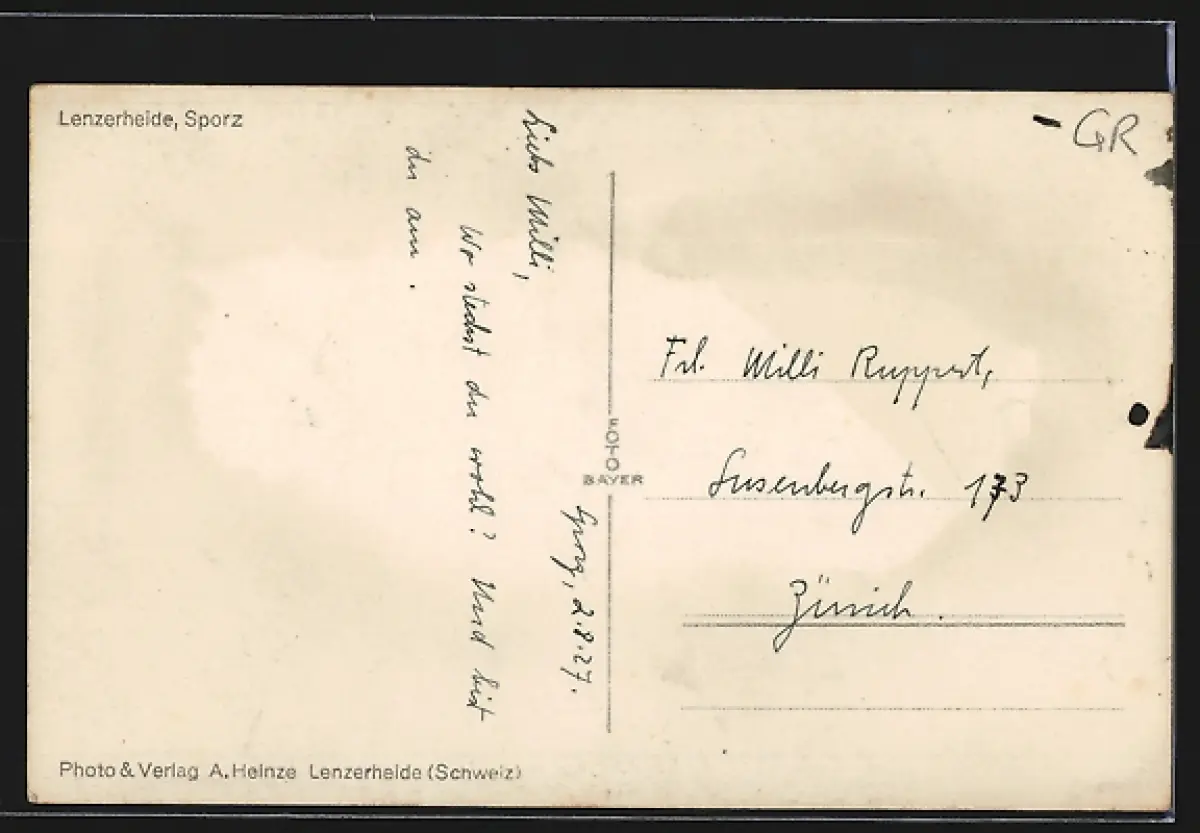 Lenzerheide, Sporz
GR
Sporz, 2.8.27.
Liebs Milli,
Wo steckst du wohl? Und bist
du am .
FOTO
BAYER
Frl. Milli Ruppert,
Susenbergstr. 173
Zürich.
Photo & Verlag A. Heinze Lenzerheide (Schweiz)